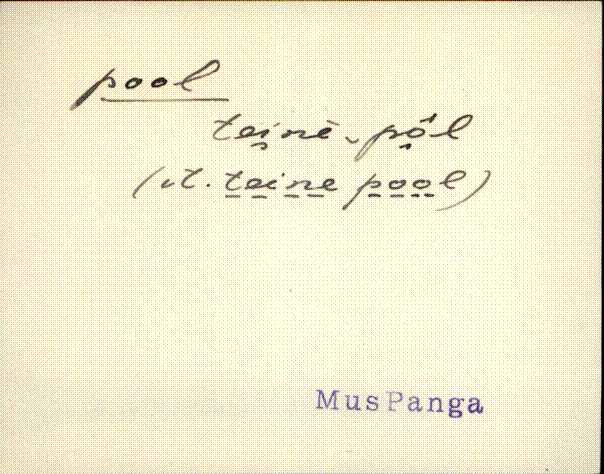 pool
tei̯nè ̮pō̭l
(vt. teine pool)
MusPanga